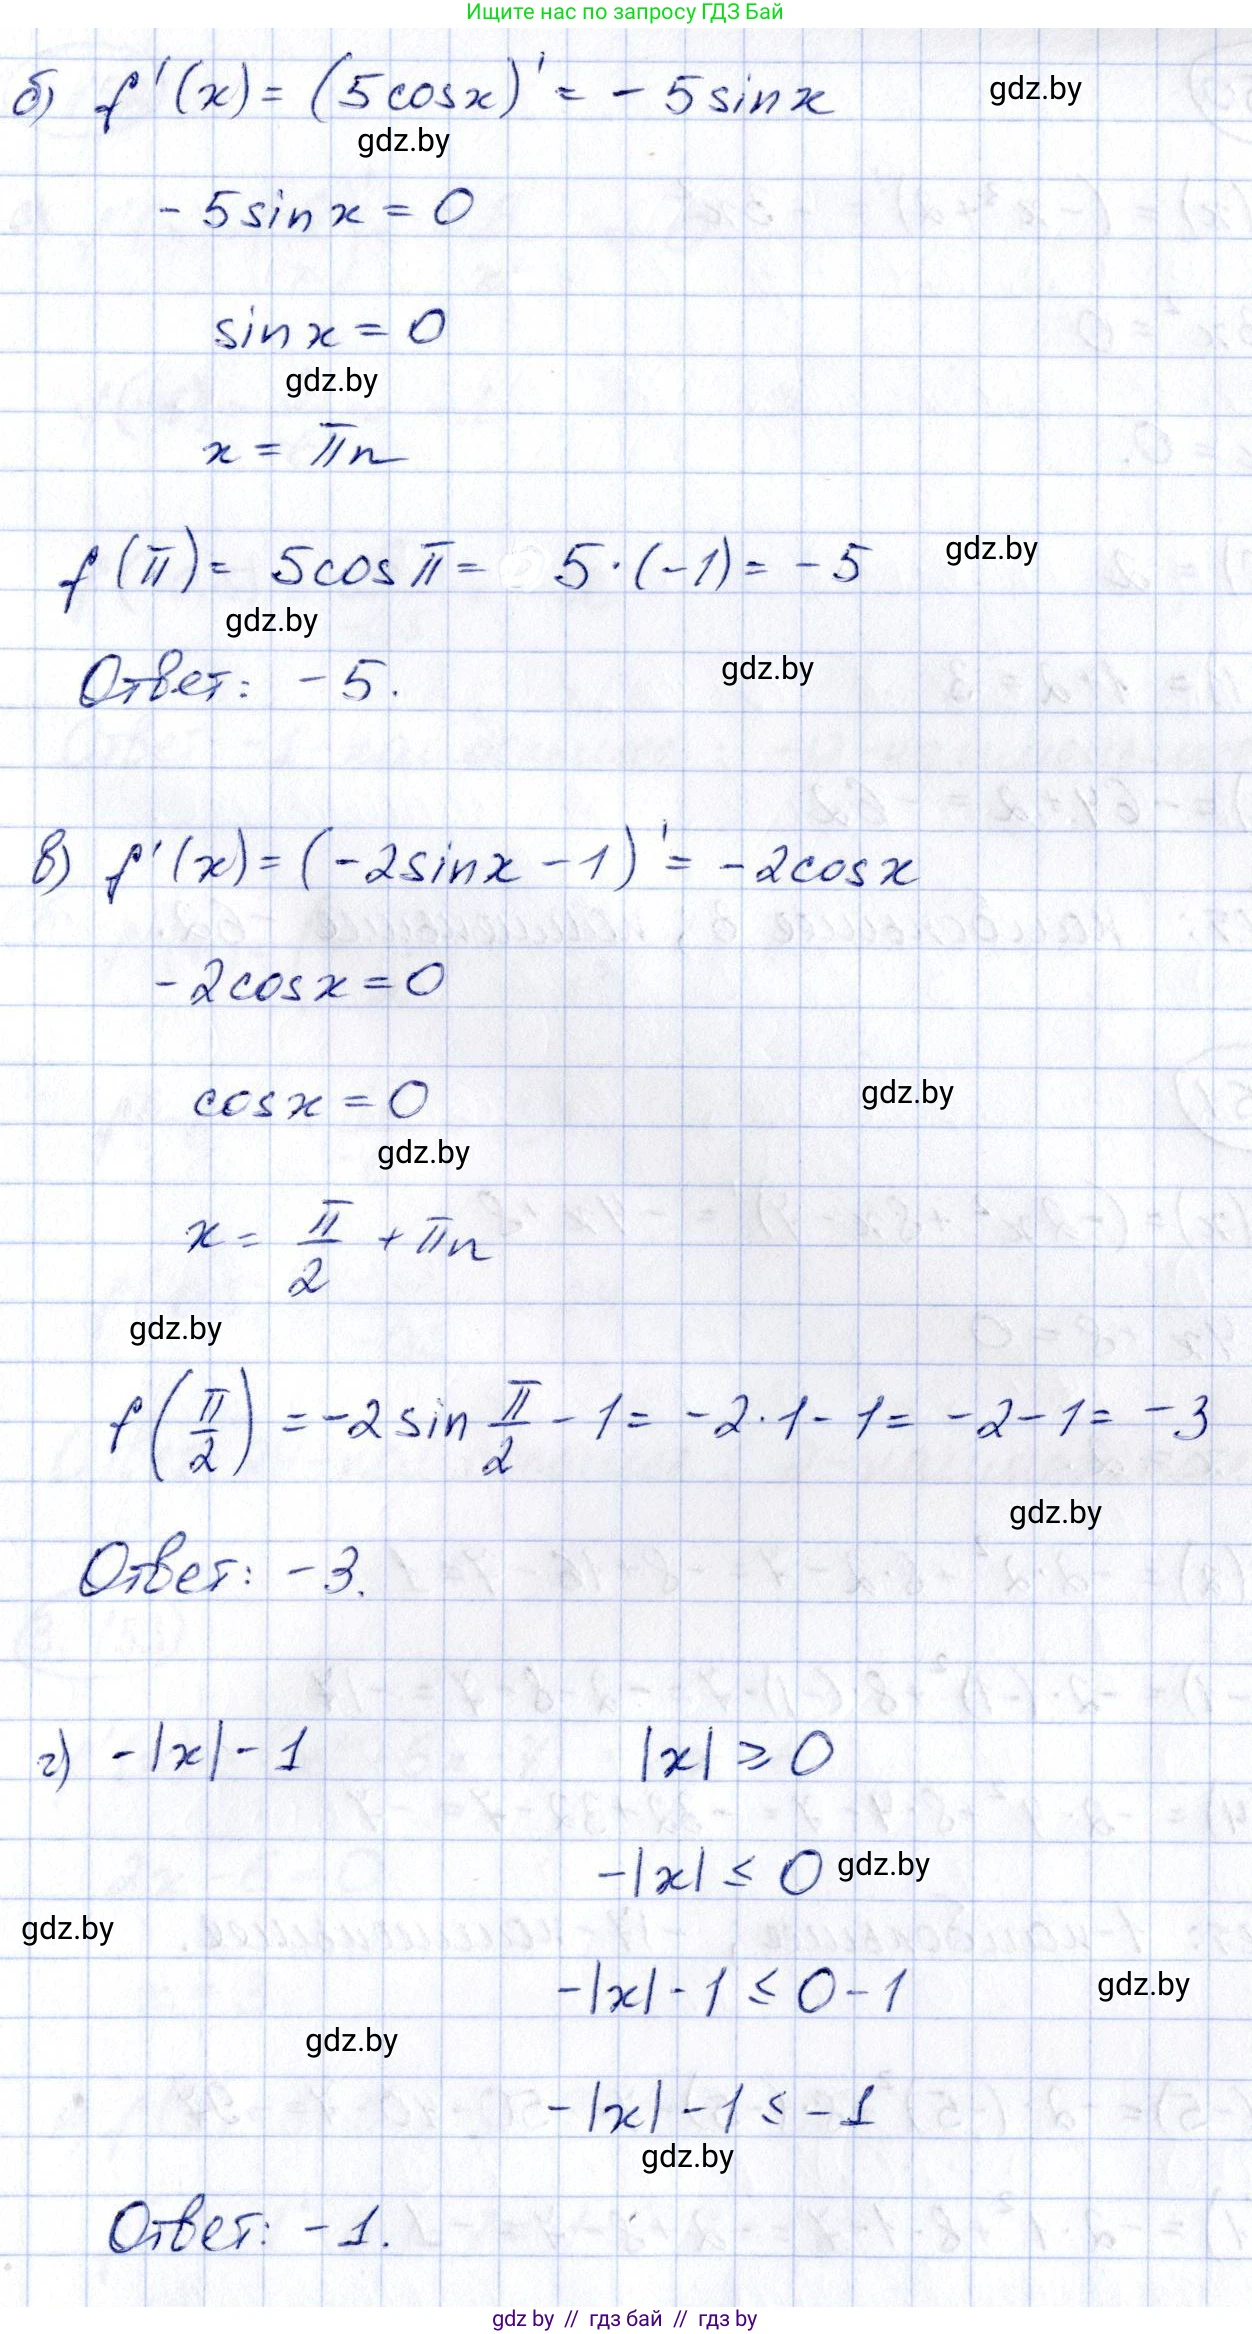 Ищите нас по запросу ГДЗ Бай
б) f'(x) = (5cosx)' = -5sinx
gdz.by
gdz.by
-5sinx = 0
sinx = 0
gdz.by
x = πn
f(π) = 5cosπ = 5·(-1) = -5
gdz.by
gdz.by
Ответ: -5.
gdz.by
в) f'(x) = (-2sinx - 1)' = -2cosx
-2cosx = 0
cosx = 0
gdz.by
gdz.by
x = π/2 + πn
gdz.by
f(π/2) = -2sin π/2 - 1 = -2·1 - 1 = -2 - 1 = -3
gdz.by
Ответ: -3.
г) -|x| - 1 |x| ≥ 0
-|x| ≤ 0 gdz.by
gdz.by
-|x| - 1 ≤ 0 - 1
gdz.by
gdz.by
-|x| - 1 ≤ -1
gdz.by
Ответ: -1.
gdz by // гдз бай // гдз by